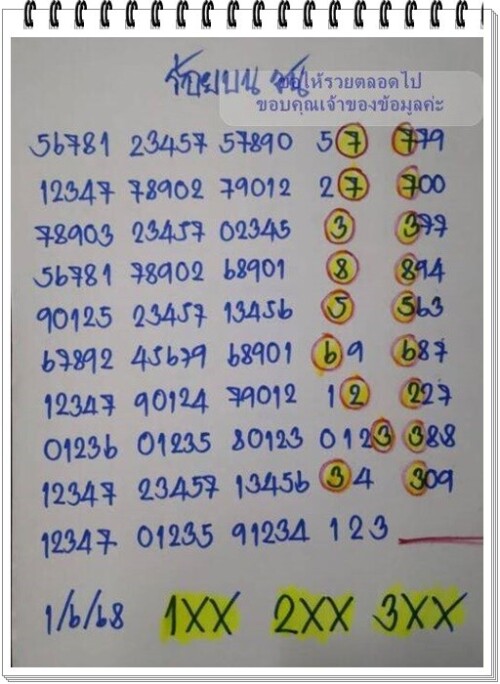 ร้อยบน ชน
ขอให้รวยตลอดไป
ขอบคุณเจ้าของข้อมูลค่ะ
56781 23457 57890 57 779
12347 78902 79012 27 700
78903 23457 02345 3 377
56781 78902 68901 8 894
90125 23457 13456 5 563
67892 45679 68901 69 687
12347 90124 79012 12 227
01236 01235 80123 0123 388
12347 23457 13456 34 309
12347 01235 91234 123
1/6/68 1XX 2XX 3XX